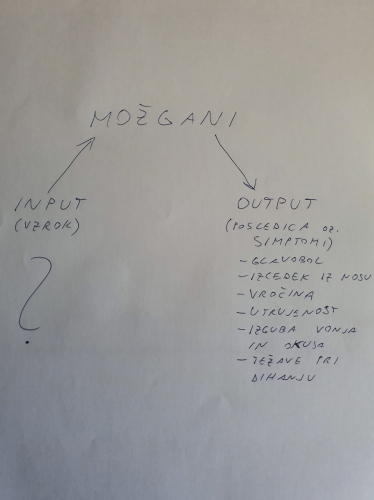 MOŽGANI
INPUT
(VZROK)
?
OUTPUT
(POSLEDICA OZ.
SIMPTOMI)
- GLAVOBOL
- IZCEDEK IZ NOSU
- VROČINA
- UTRUJENOST
- IZGUBA VONJA
IN OKUSA
- TEŽAVE PRI
DIHANJU